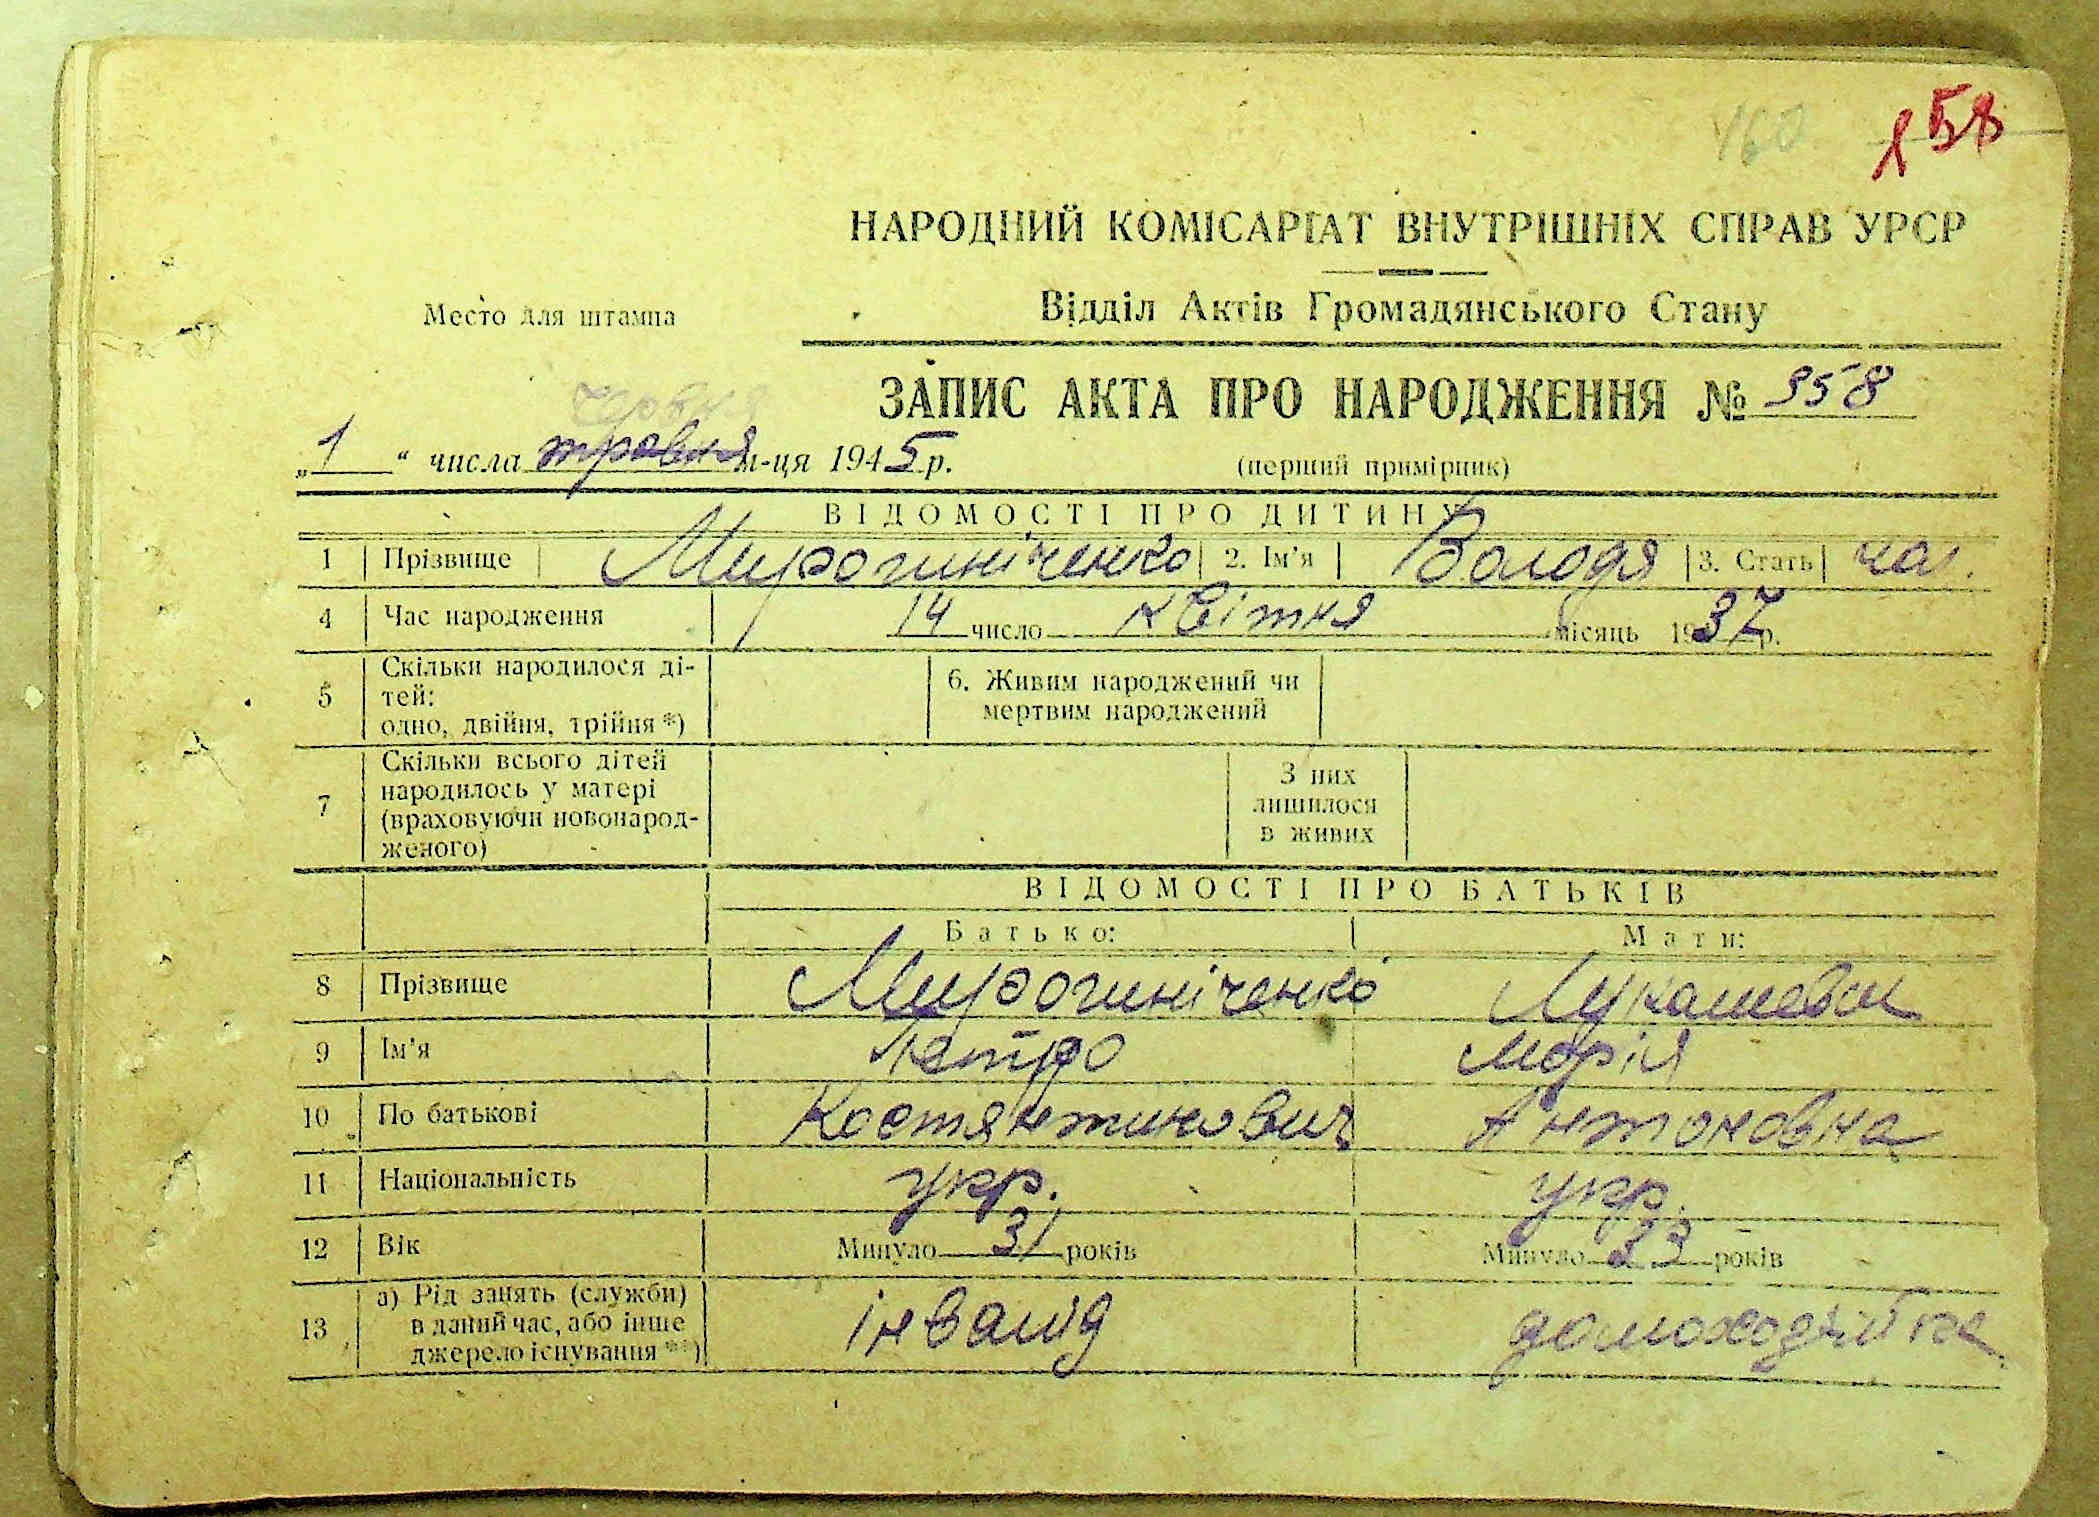 160 158
НАРОДНИЙ КОМІСАРІАТ ВНУТРІШНІХ СПРАВ УРСР
Место для штампа
Відділ Актів Громадянського Стану
червня
ЗАПИС АКТА ПРО НАРОДЖЕННЯ № 958
„1“ числа травня м-ця 1945 р.
(перший примірник)
ВІДОМОСТІ ПРО ДИТИНУ
1 Прізвище Мирошніченко 2. Ім'я Володя 3. Стать чол.
4 Час народження 14 число квітня місяць 1937 р.
5 Скільки народилося ді-
тей:
одно, двійня, трійня *)
6. Живим народжений чи
мертвим народжений
7 Скільки всього дітей
народилось у матері
(враховуючи новонарод-
женого)
З них
лишилося
в живих
ВІДОМОСТІ ПРО БАТЬКІВ
Батько: Мати:
8 Прізвище Мирошніченко Лукашевич
9 Ім'я Петро Марія
10 По батькові Костянтинович Антоновна
11 Національність укр. укр.
12 Вік Минуло 31 років Минуло 33 років
13 а) Рід занять (служби)
в даний час, або інше
джерело існування **)
інвалід домохозяйка